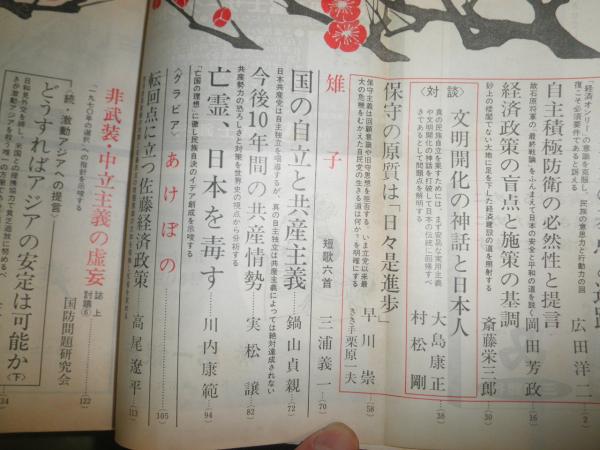 「経済オンリー」の意識を克服し、民族の意思力と行動力の回
復こそ必須要件であると訴える
広田洋二
2
自主積極防衛の必然性と提言
故石原将軍の「最終戦論」をふんまえて日本の安全と平和の道を説く
岡田芳政
16
経済政策の盲点と施策の基調
砂上の楼閣でない大地に足を下した経済建設の道を明射する
斎藤栄三郎
30
〈対談〉
文明開化の神話と日本人
真の民族自立を果すためには、まず安易な実用主義
や文明開化の神話を打破して日本の伝統に回帰すべ
きであるとして問題点を解明する
大島康正
村松剛
38
保守の原質は「日々是進歩」
保守主義は回顧意識や旧守思想を拒否する。いま立党以来最
大の危機をむかえた自民党の生きる道は何か?を明確にする
早川崇
きき手栗原一夫
58
雉子
短歌六首
三浦義一
70
国の自立と共産主義
日本共産党は自主独立を唱導するが、真の自主独立は共産主義によっては絶対達成されない
鍋山貞親
72
今後10年間の共産情勢
共産勢力の恐ろしさと対策を世界史の視点から分析する
実松譲
82
亡霊、日本を毒す
「亡国の理想」に優し民族自決のイデア創成を示唆する
川内康範
94
〈グラビア〉あけぼの
105
転回点に立つ佐藤経済政策
高尾遼平
113
非武装・中立主義の虚妄
誌上
討論⑥
「一九七〇年の選択」への指針を示唆する
122
〈続・激動アジアへの提言〉
どうすればアジアの安定は可能か
(下)
国防問題研究会
134